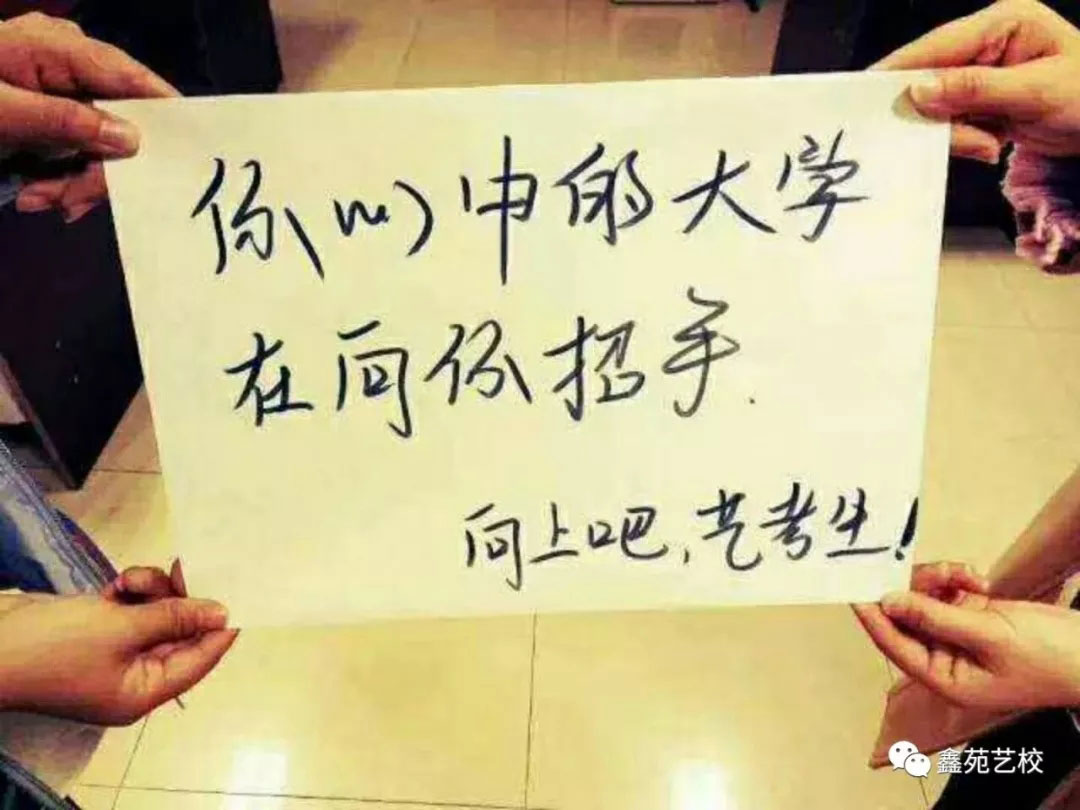 你心中的大学
在向你招手.
向上吧,艺考生!
鑫苑艺校